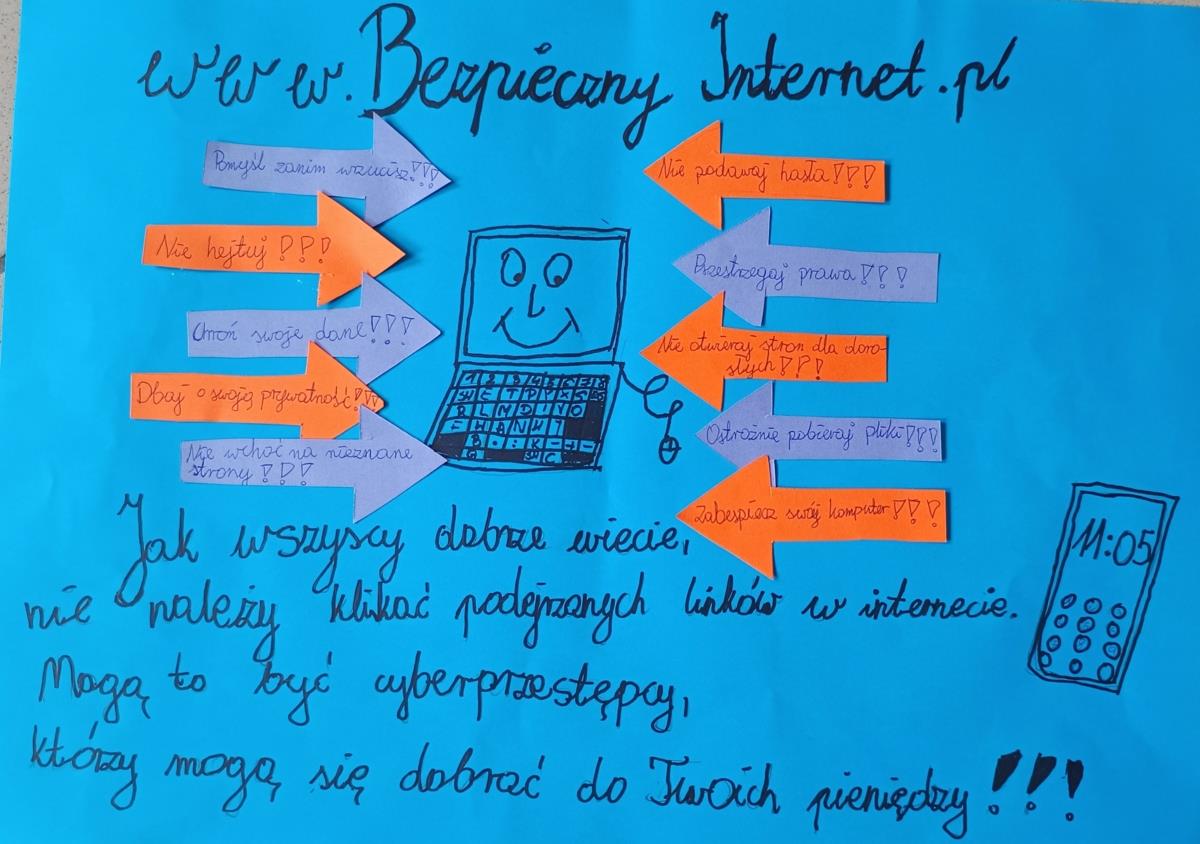 www.Bezpieczny Internet.pl
Pomyśl zanim wrzucisz!!!
Nie hejtuj!!!
Chroń swoje dane!!!
Dbaj o swoją prywatność!!!
Nie wchoć na nieznane
strony!!!
Nie podawaj hasła!!!
Przestrzegaj prawa!!!
Nie otwieraj stron dla doro-
słych!!!
Ostrożnie pobieraj pliki!!!
Zabezpiecz swój komputer!!!
11:05
Jak wszyscy dobrze wiecie,
nie należy klikać podejrzanych linków w internecie.
Mogą to być cyberprzestępcy,
którzy mogą się dobrać do Twoich pieniędzy!!!